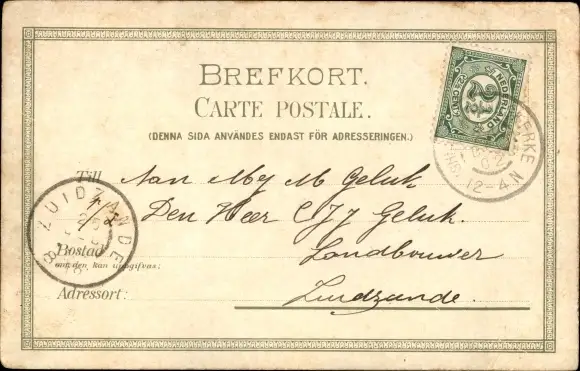 BREFKORT.
CARTE POSTALE.
(DENNA SIDA ANVÄNDES ENDAST FÖR ADRESSERINGEN.)
NEDERLAND
2½
CENT
12-4 N
Till Aan Mej M Geluk
Den Heer C J J Geluk.
Bostad Landbouwer
Adressort: Zuidzande.
ZUIDZANDE